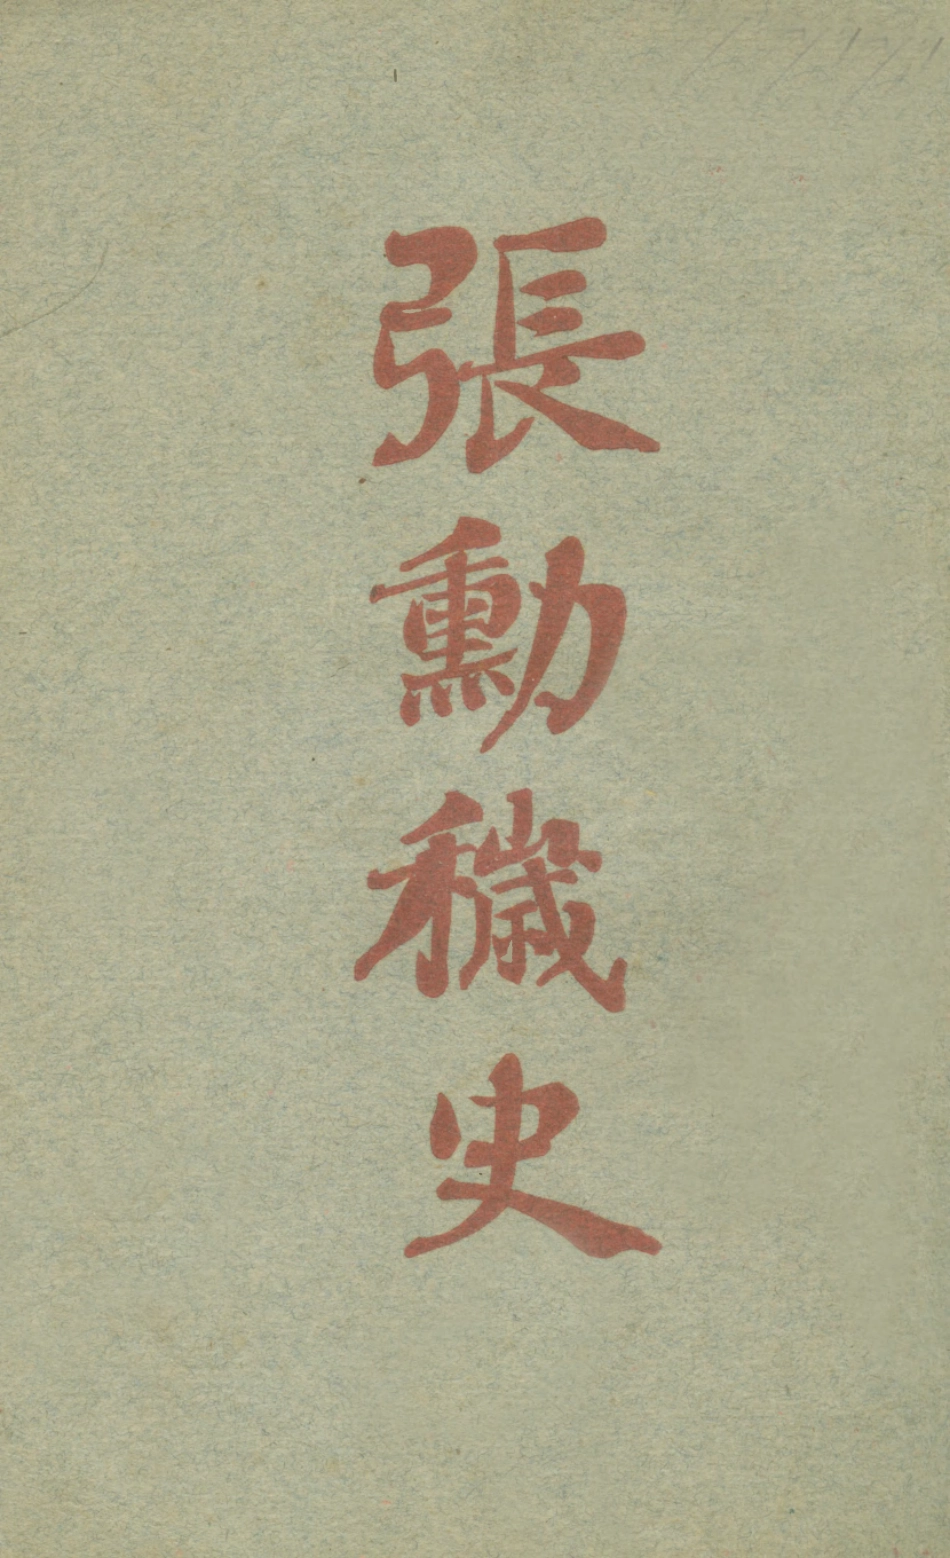 張勳穢史